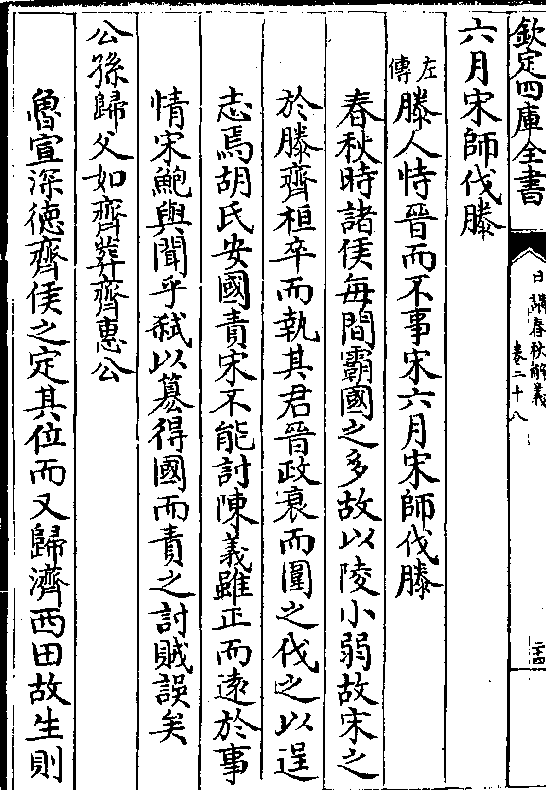 欽定四庫全書
日講春秋解義
卷二十八
二十四
六月宋師伐滕
左傳
滕人恃晉而不事宋六月宋師伐滕
春秋時諸侯每間霸國之多故以陵小弱故宋之
於滕齊桓卒而執其君晉政衰而圍之伐之以逞
志焉胡氏安國責宋不能討陳義雖正而遠於事
情宋鮑與聞乎弒以簒得國而責之討賊誤矣
公孫歸父如齊葬齊惠公
魯宣深德齊侯之定其位而又歸濟西田故生則